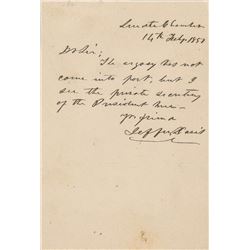 Senate Chamber
14th Feby. 1851
Dr Sir;
The argosy has not
come into port, but I
see the private secretary
of the President here
yr. friend
Jeffn. Davis